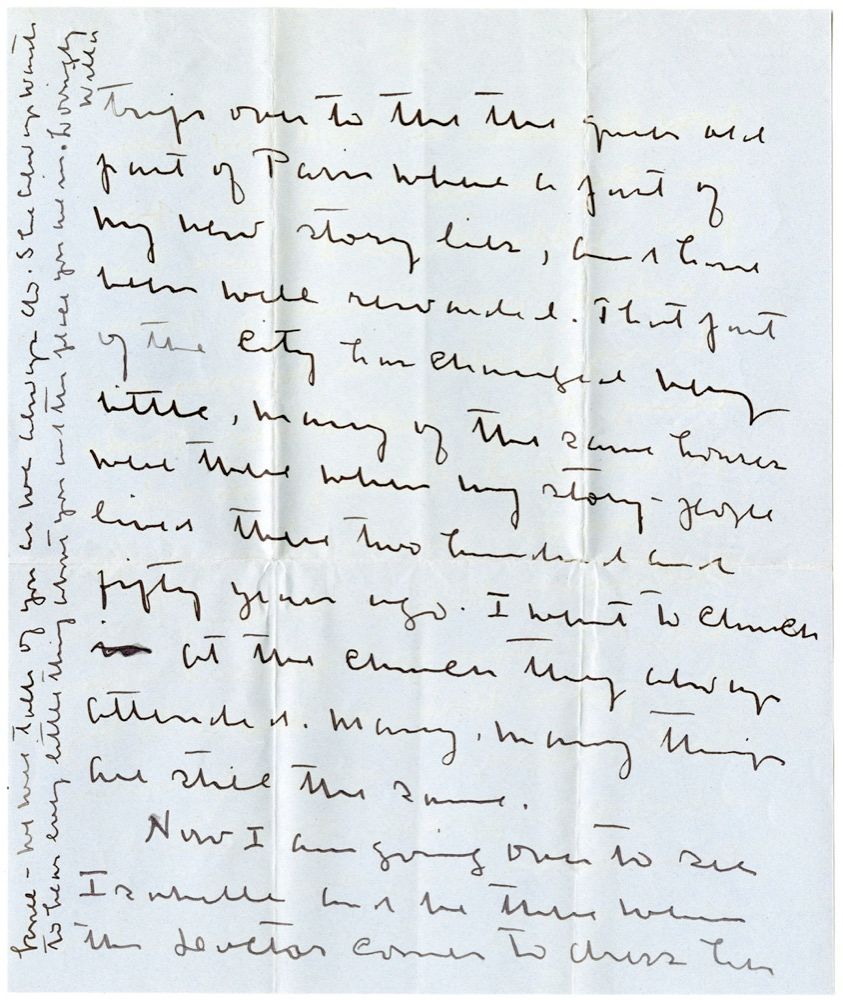 trips over to the the queer old
part of Paris where a part of
my new story lies, and I have
been well rewarded. That part
of the city has changed very
little, many of the same houses
were there when my story-people
lived there two hundred and
fifty years ago. I went to church
at the church they always
attended. Many, many things
are still the same.
Now I am going over to see
Isabelle and be there when
the doctor comes to dress her
- we will talk of you as we always do. She always wants
to hear every little thing about you and the place you are in. Lovingly
Willa